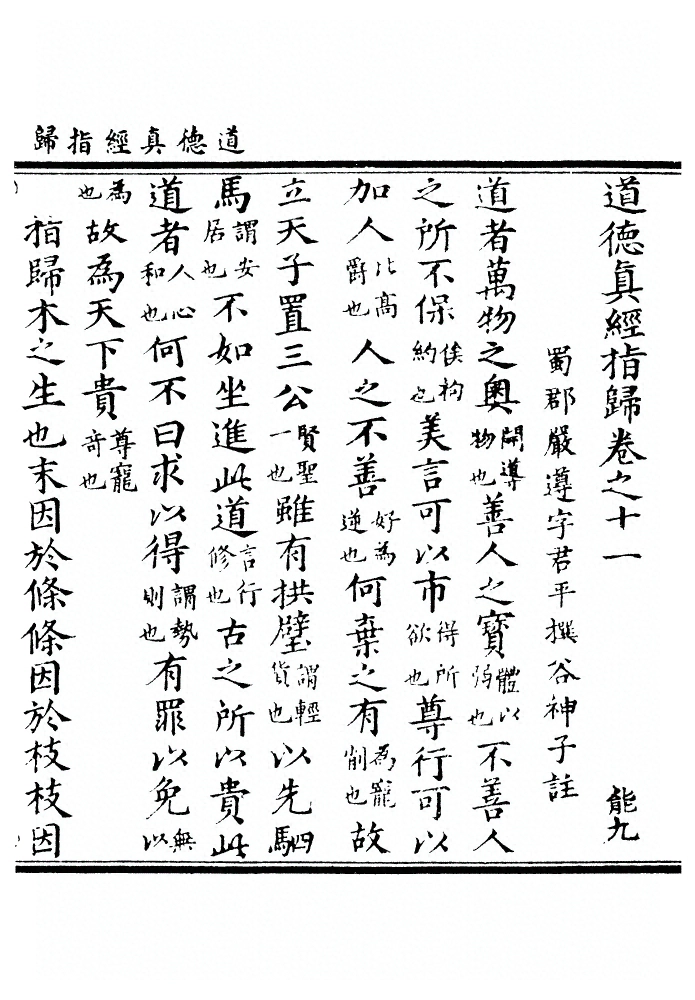 道德真經指歸
道德眞經指歸卷之十一 能九
蜀郡嚴遵字君平撰谷神子註
道者萬物之奧開導物也善人之寳體以弱也不善人
之所不保約也美言可以市得所欲也尊行可以
加人比高爵也人之不善好為逆也何棄之有為寵削也故
立天子置三公賢聖一也雖有拱璧謂輕貨也以先駟
馬謂安居也不如坐進此道言行修也古之所以貴此
道者人心和也何不曰求以得謂勢則也有罪以免無以
為也故為天下貴尊寵竒也
指歸木之生也末因於條條因於枝枝因